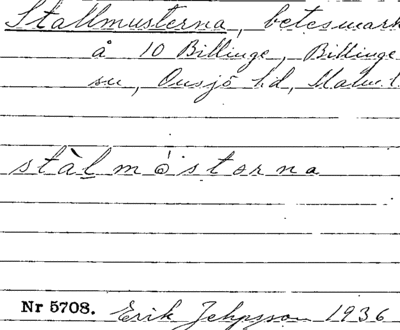 Stallmusterna, betesmark
å 10 Billinge, Billinge
sn, Onsjö hd, Malm. l.
stàlmöstorna
Nr 5708. Erik Jeppsson 1936